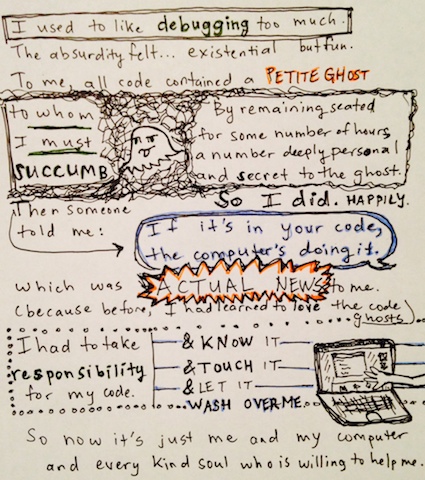 I used to like debugging too much.
The absurdity felt... existential but fun.
To me, all code contained a PETITE GHOST
to whom
I must
SUCCUMB
By remaining seated
for some number of hours,
a number deeply personal
and secret to the ghost.
So I did. HAPPILY.
Then someone
told me:
If it's in your code,
the computer's doing it.
which was ACTUAL NEWS to me.
(because before, I had learned to love the code
ghosts)
I had to take
responsibility
for my code.
& KNOW IT
& TOUCH IT
& LET IT
WASH OVER ME.
So now it's just me and my computer
and every kind soul who is willing to help me.